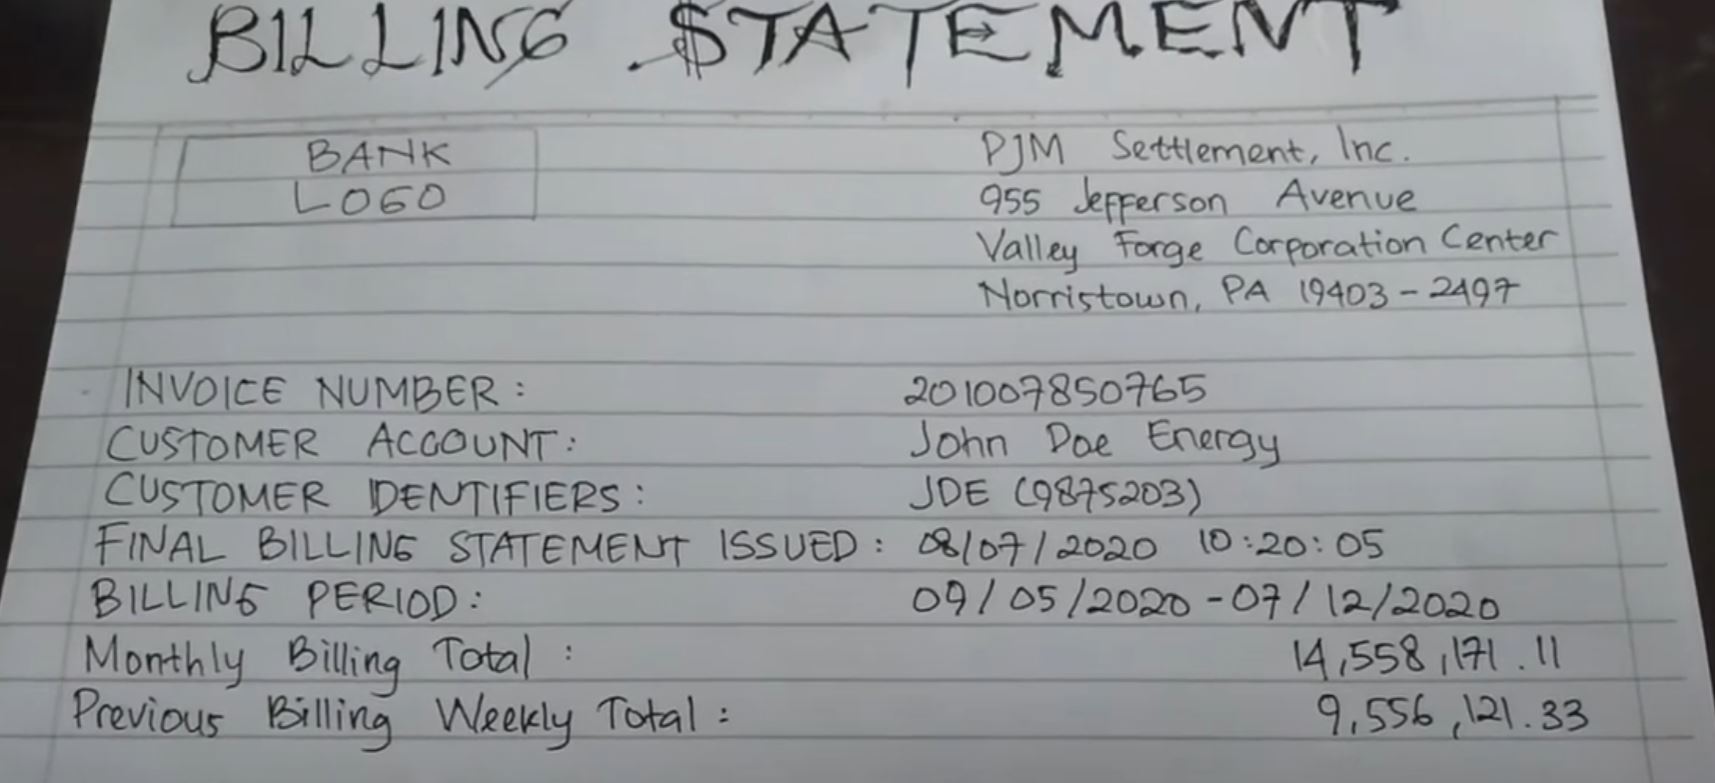 BILLING STATEMENT
BANK
LOGO
PJM Settlement, Inc.
955 Jefferson Avenue
Valley Forge Corporation Center
Norristown, PA 19403-2497
INVOICE NUMBER: 201007850765
CUSTOMER ACCOUNT: John Doe Energy
CUSTOMER IDENTIFIERS: JDE (9875203)
FINAL BILLING STATEMENT ISSUED: 08/07/2020 10:20:05
BILLING PERIOD: 09/05/2020-07/12/2020
Monthly Billing Total: 14,558,171.11
Previous Billing Weekly Total: 9,556,121.33